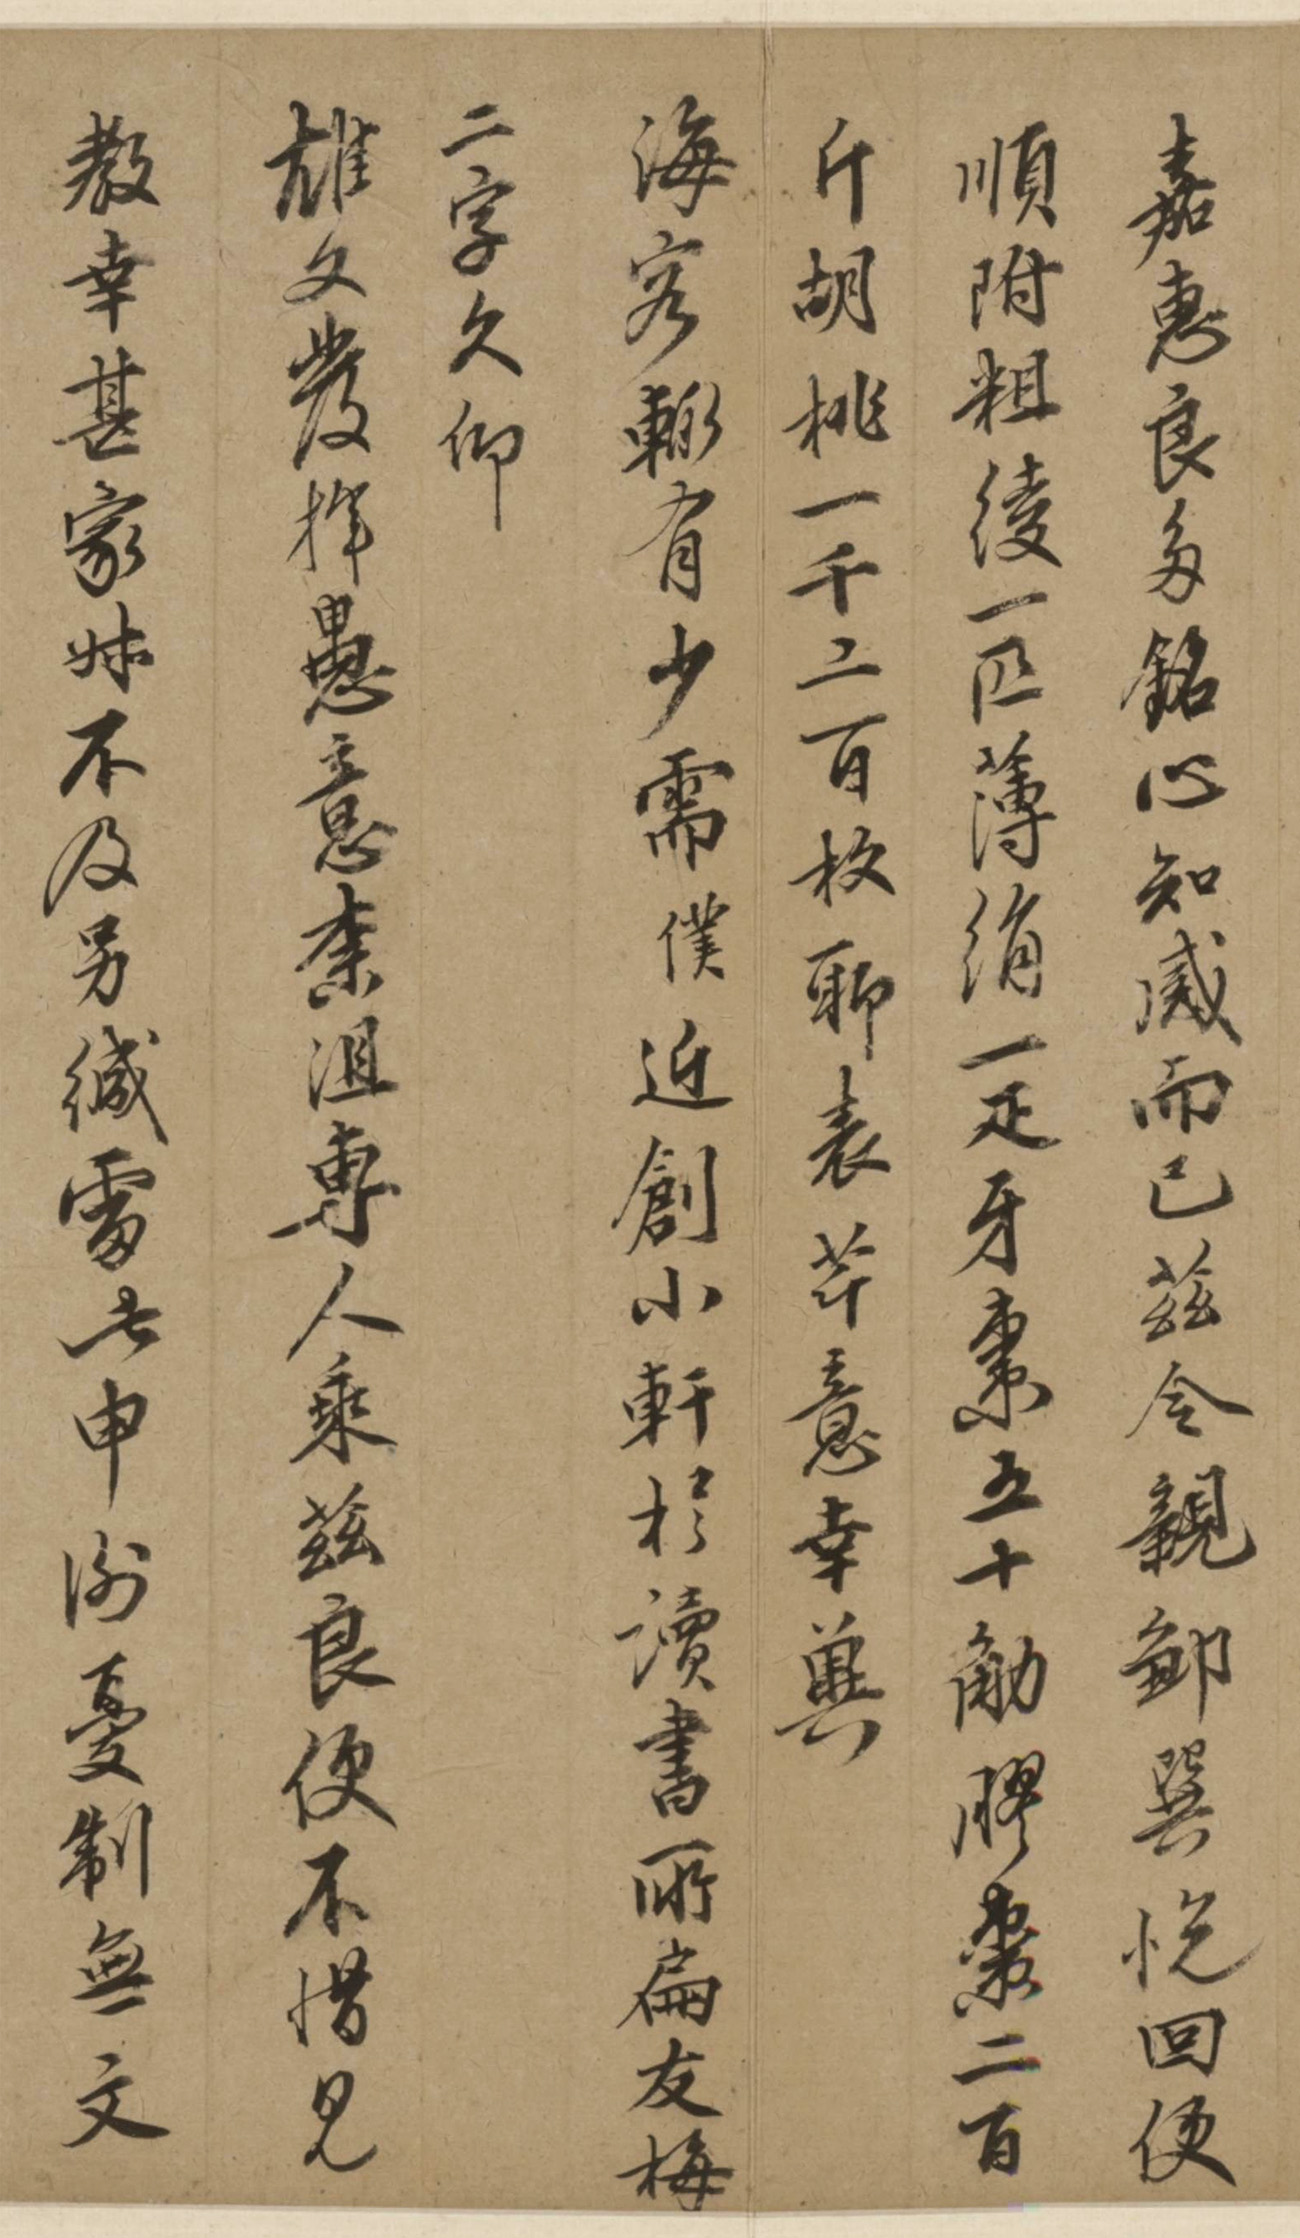 嘉惠良多銘心知感而已茲令親鄒巽悅回便
順附粗綾一匹薄絹一疋牙棗五十觔膠棗二百
斤胡桃一千二百枚聊表芹意幸冀
海容輒有少需僕近創小軒於讀書所扁友梅
二字久仰
雄文發揮愚意柰沮專人乘茲良便不惜見
教幸甚家姊不及另緘雷此申謝憂制無文